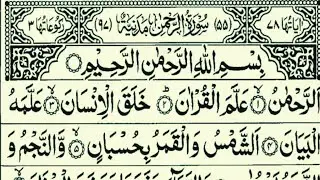 اٰیَاتُهَا ۷۸ (۵۵) سُوْرَةُ الرَّحْمٰنِ مَدَنِيَّةٌ (۹۴) رُكُوْعَاتُهَا ۳
بِسْمِ اللّٰهِ الرَّحْمٰنِ الرَّحِيْمِ
اَلرَّحْمٰنُ ۱ عَلَّمَ الْقُرْاٰنَ ۲ خَلَقَ الْاِنْسَانَ ۳ عَلَّمَهُ
الْبَيَانَ ۴ اَلشَّمْسُ وَالْقَمَرُ بِحُسْبَانٍ ۵ وَّالنَّجْمُ وَ